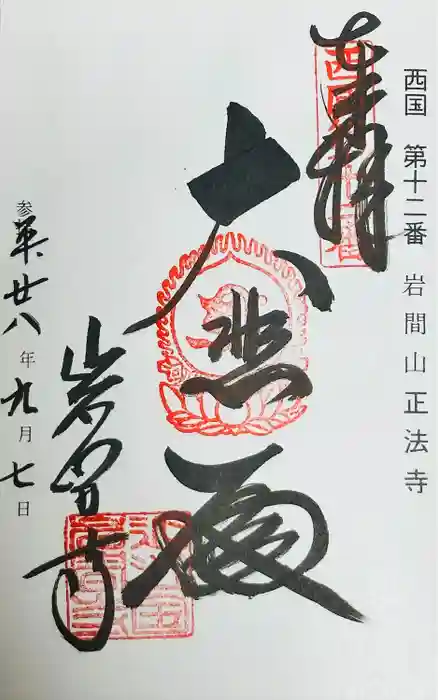 西国 第十二番 岩間山正法寺
奉拝
西国十二番
大悲殿
岩間寺
参 平廿八年九月七日